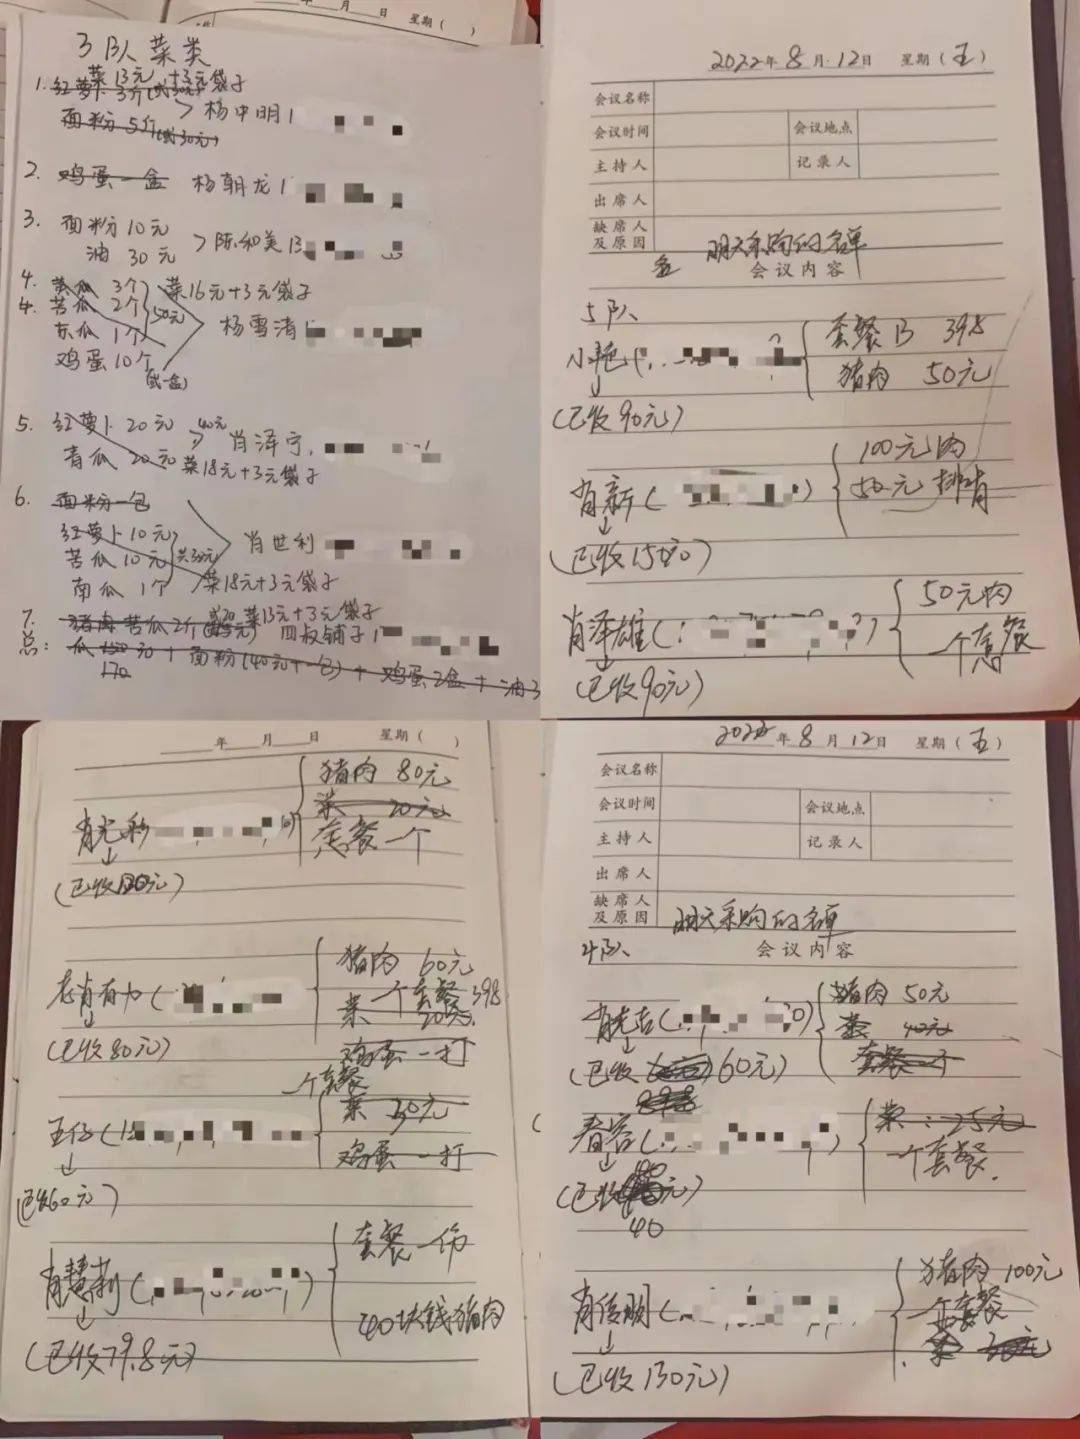 年 月 日 星期( )
3队菜类
菜13元+3元袋子
1. 红萝卜3斤
面粉5斤(或30元) > 杨中明
2. 鸡蛋一盒 杨朝龙
3. 面粉10元
油 30元 > 陈和美
4. 黄瓜 3个 菜16元+3元袋子
4. 苦瓜 2个 50元
东瓜 1个 杨雪清
鸡蛋10个
(或一盒)
5. 红萝卜20元 40元 肖泽宁
青瓜 20元 菜18元+3元袋子
6. 面粉一包
红萝卜10元 肖世利
苦瓜10元 共30元
南瓜 1个 菜18元+3元袋子
菜13元+3元袋子
7. 猪肉 苦瓜2斤 四叔铺子
总: 瓜 元 + 面粉(40元+一包) + 鸡蛋2盒 + 油3
170
2022年8月12日 星期(五)
会议名称
会议时间 会议地点
主持人 记录人
出席人
缺席人
及原因
明天采购的名单
会议内容
5队
小艳( 套餐B 39.8
猪肉 50元
(已收90元)
肖新( ) 100元肉
50元排骨
(已收150元)
肖泽雄( ) 50元肉
一个套餐
(已收90元)
年 月 日 星期( )
猪肉 80元
菜 20元
肖光彩 套餐一个
(已收120元)
猪肉 60元
老肖有力( 一个套餐 39.8
菜 20元
(已收80元) 鸡蛋一打
一个套餐
菜 30元
王仔( 鸡蛋一打
(已收60元)
套餐一份
肖慧莉( ) 40块钱猪肉
(已收79.8元)
2022年8月12日 星期(五)
会议名称
会议时间 会议地点
主持人 记录人
出席人
缺席人
及原因
明天采购的名单
4队 会议内容
猪肉 50元
肖光吉( ) 菜 40元
套餐一个
(已收 60元)
菜:25元
春容( ) 一个套餐.
(已收 元)
40
猪肉 100元
一个套餐
肖传明( 菜
(已收130元)